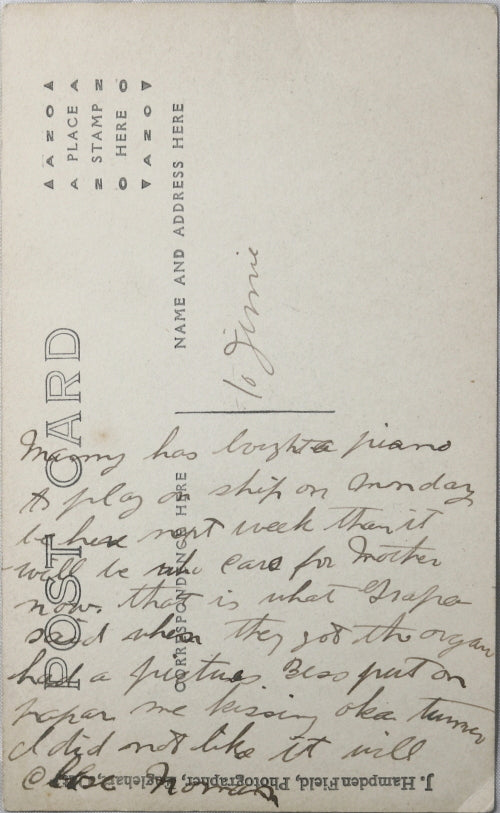 POST CARD
PLACE
STAMP
HERE
NAME AND ADDRESS HERE
CORRESPONDENCE HERE
To Jimmie
Mamy has bought a piano
to play on ship on Monday
be here next week than it
will be who care for Mother
now. that is what Grapa
said when they got the organ
had a pictures Bess put on
papar me kissing oka turner
I did not like it will
close Norman
J. Hampden Field, Photographer, Englehart,